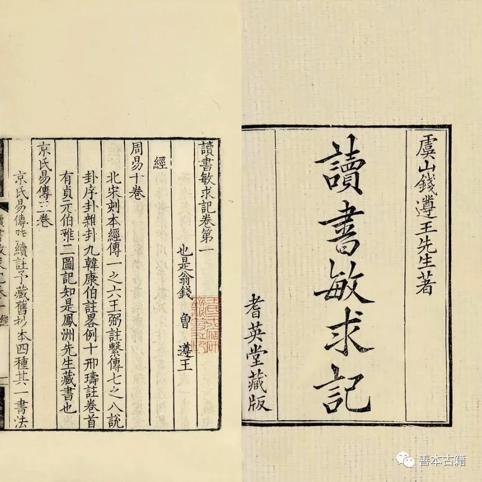 虞山錢遵王先生著
讀書敏求記
耆英堂藏版
讀書敏求記卷第一
也是翁錢曾遵王
經
周易十卷
北宋刻本經傳一之六王弼註繫傳七之八說
卦序卦雜卦九韓康伯註畧例十邢璹註卷首
有貞元伯雅二圖記知是鳳洲先生藏書也
京氏易傳三卷
京氏易傳陸績註予藏舊抄本四種其一書法
善本古籍